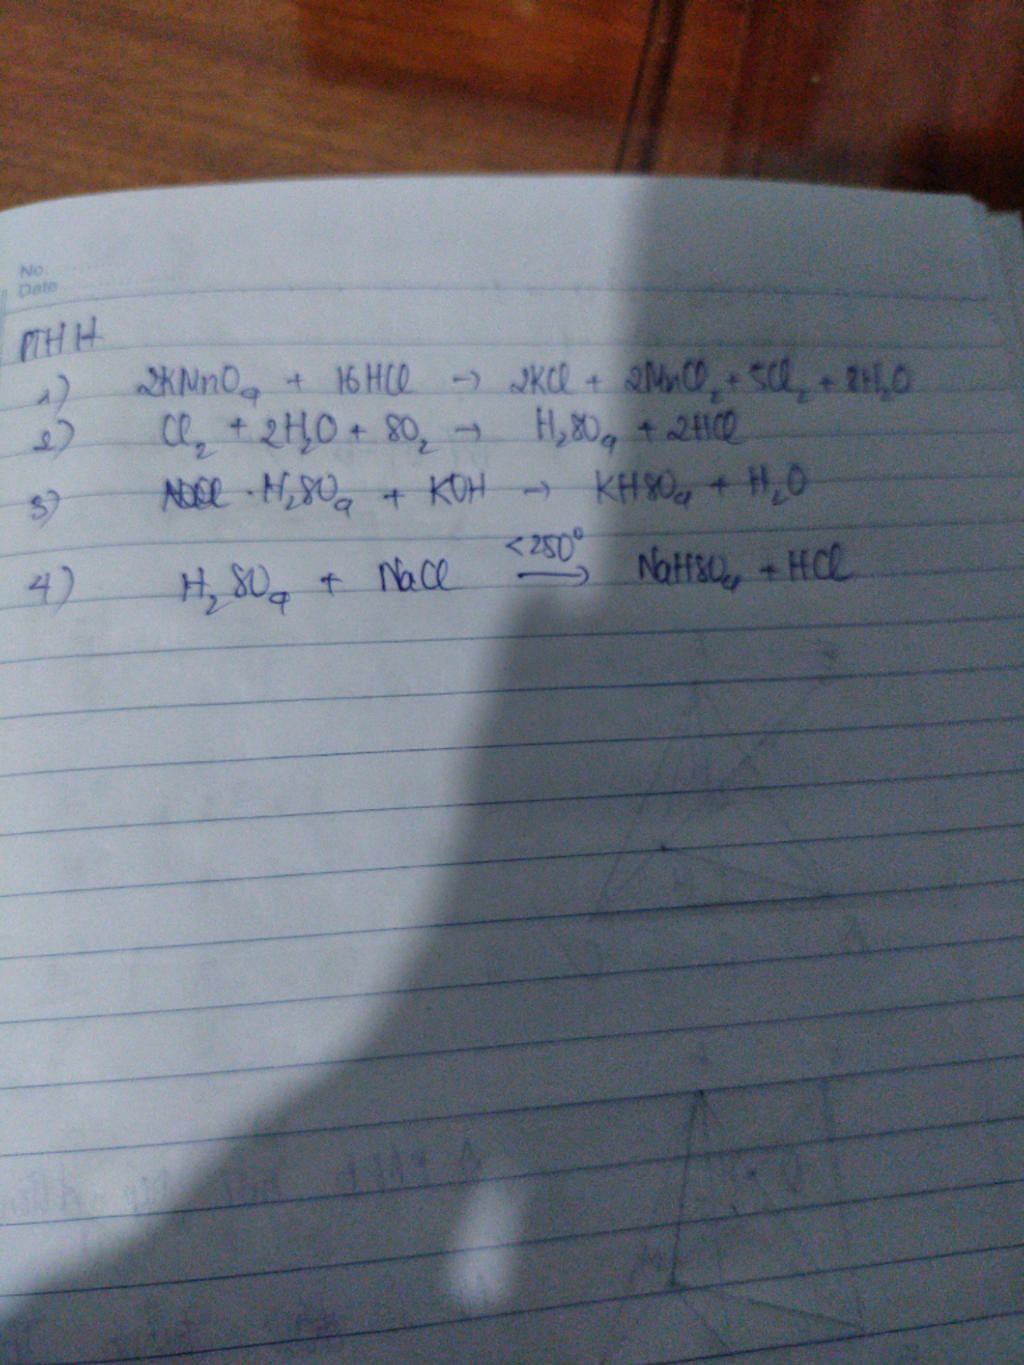 No.
Date
PTHH
1) 2KMnO₄ + 16HCl → 2KCl + 2MnCl₂ + 5Cl₂ + 8H₂O
2) Cl₂ + 2H₂O + SO₂ → H₂SO₄ + 2HCl
3) H₂SO₄ + KOH → KHSO₄ + H₂O
4) H₂SO₄ + NaCl <250° → NaHSO₄ + HCl